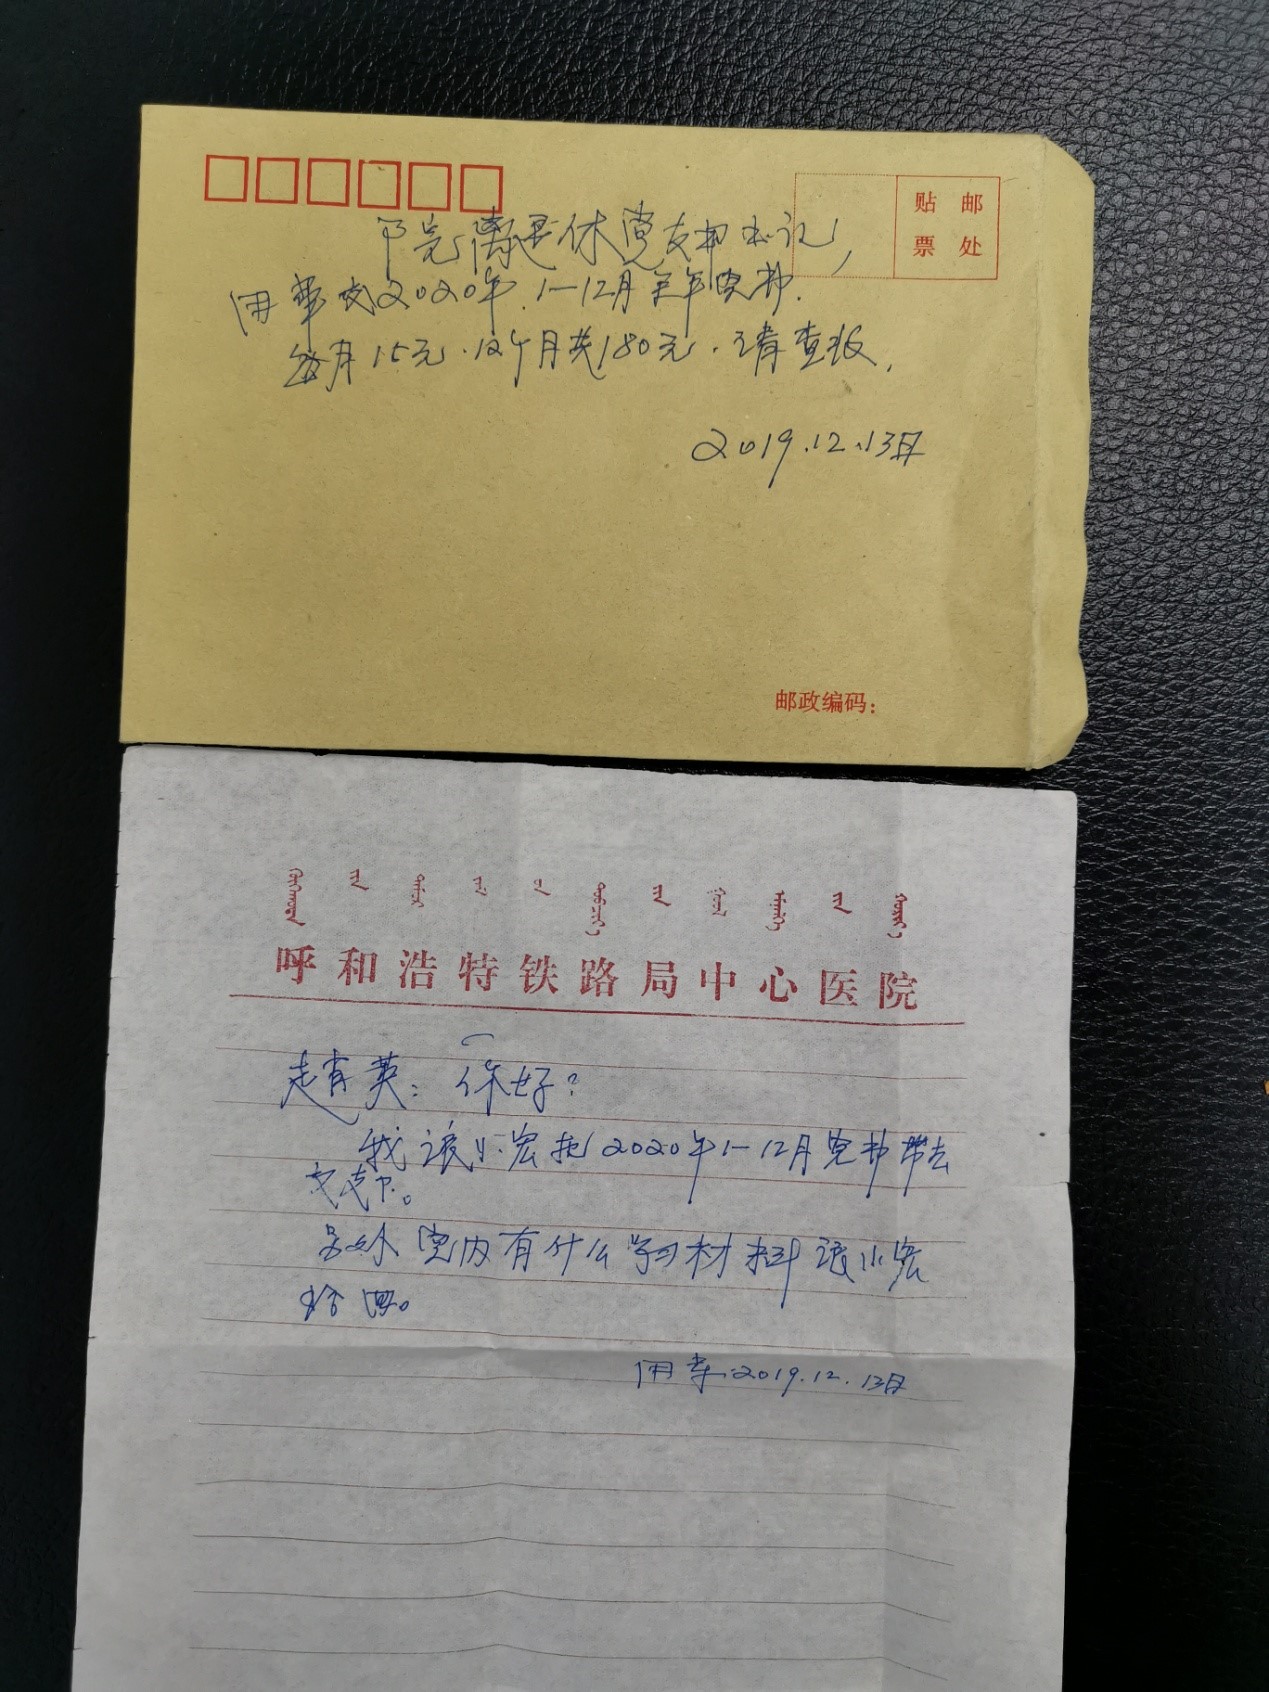 贴邮
票处
离退休党支部书记，
交2020年.1—12月全年党费.
每月15元.12个月共180元.请查收.
2019.12.13日
邮政编码：
呼和浩特铁路局中心医院
赵育英：你好？
我让小宏把2020年1-12月党费带去
交支下。
另外党内有什么学习材料让小宏
给
2019.12.13日